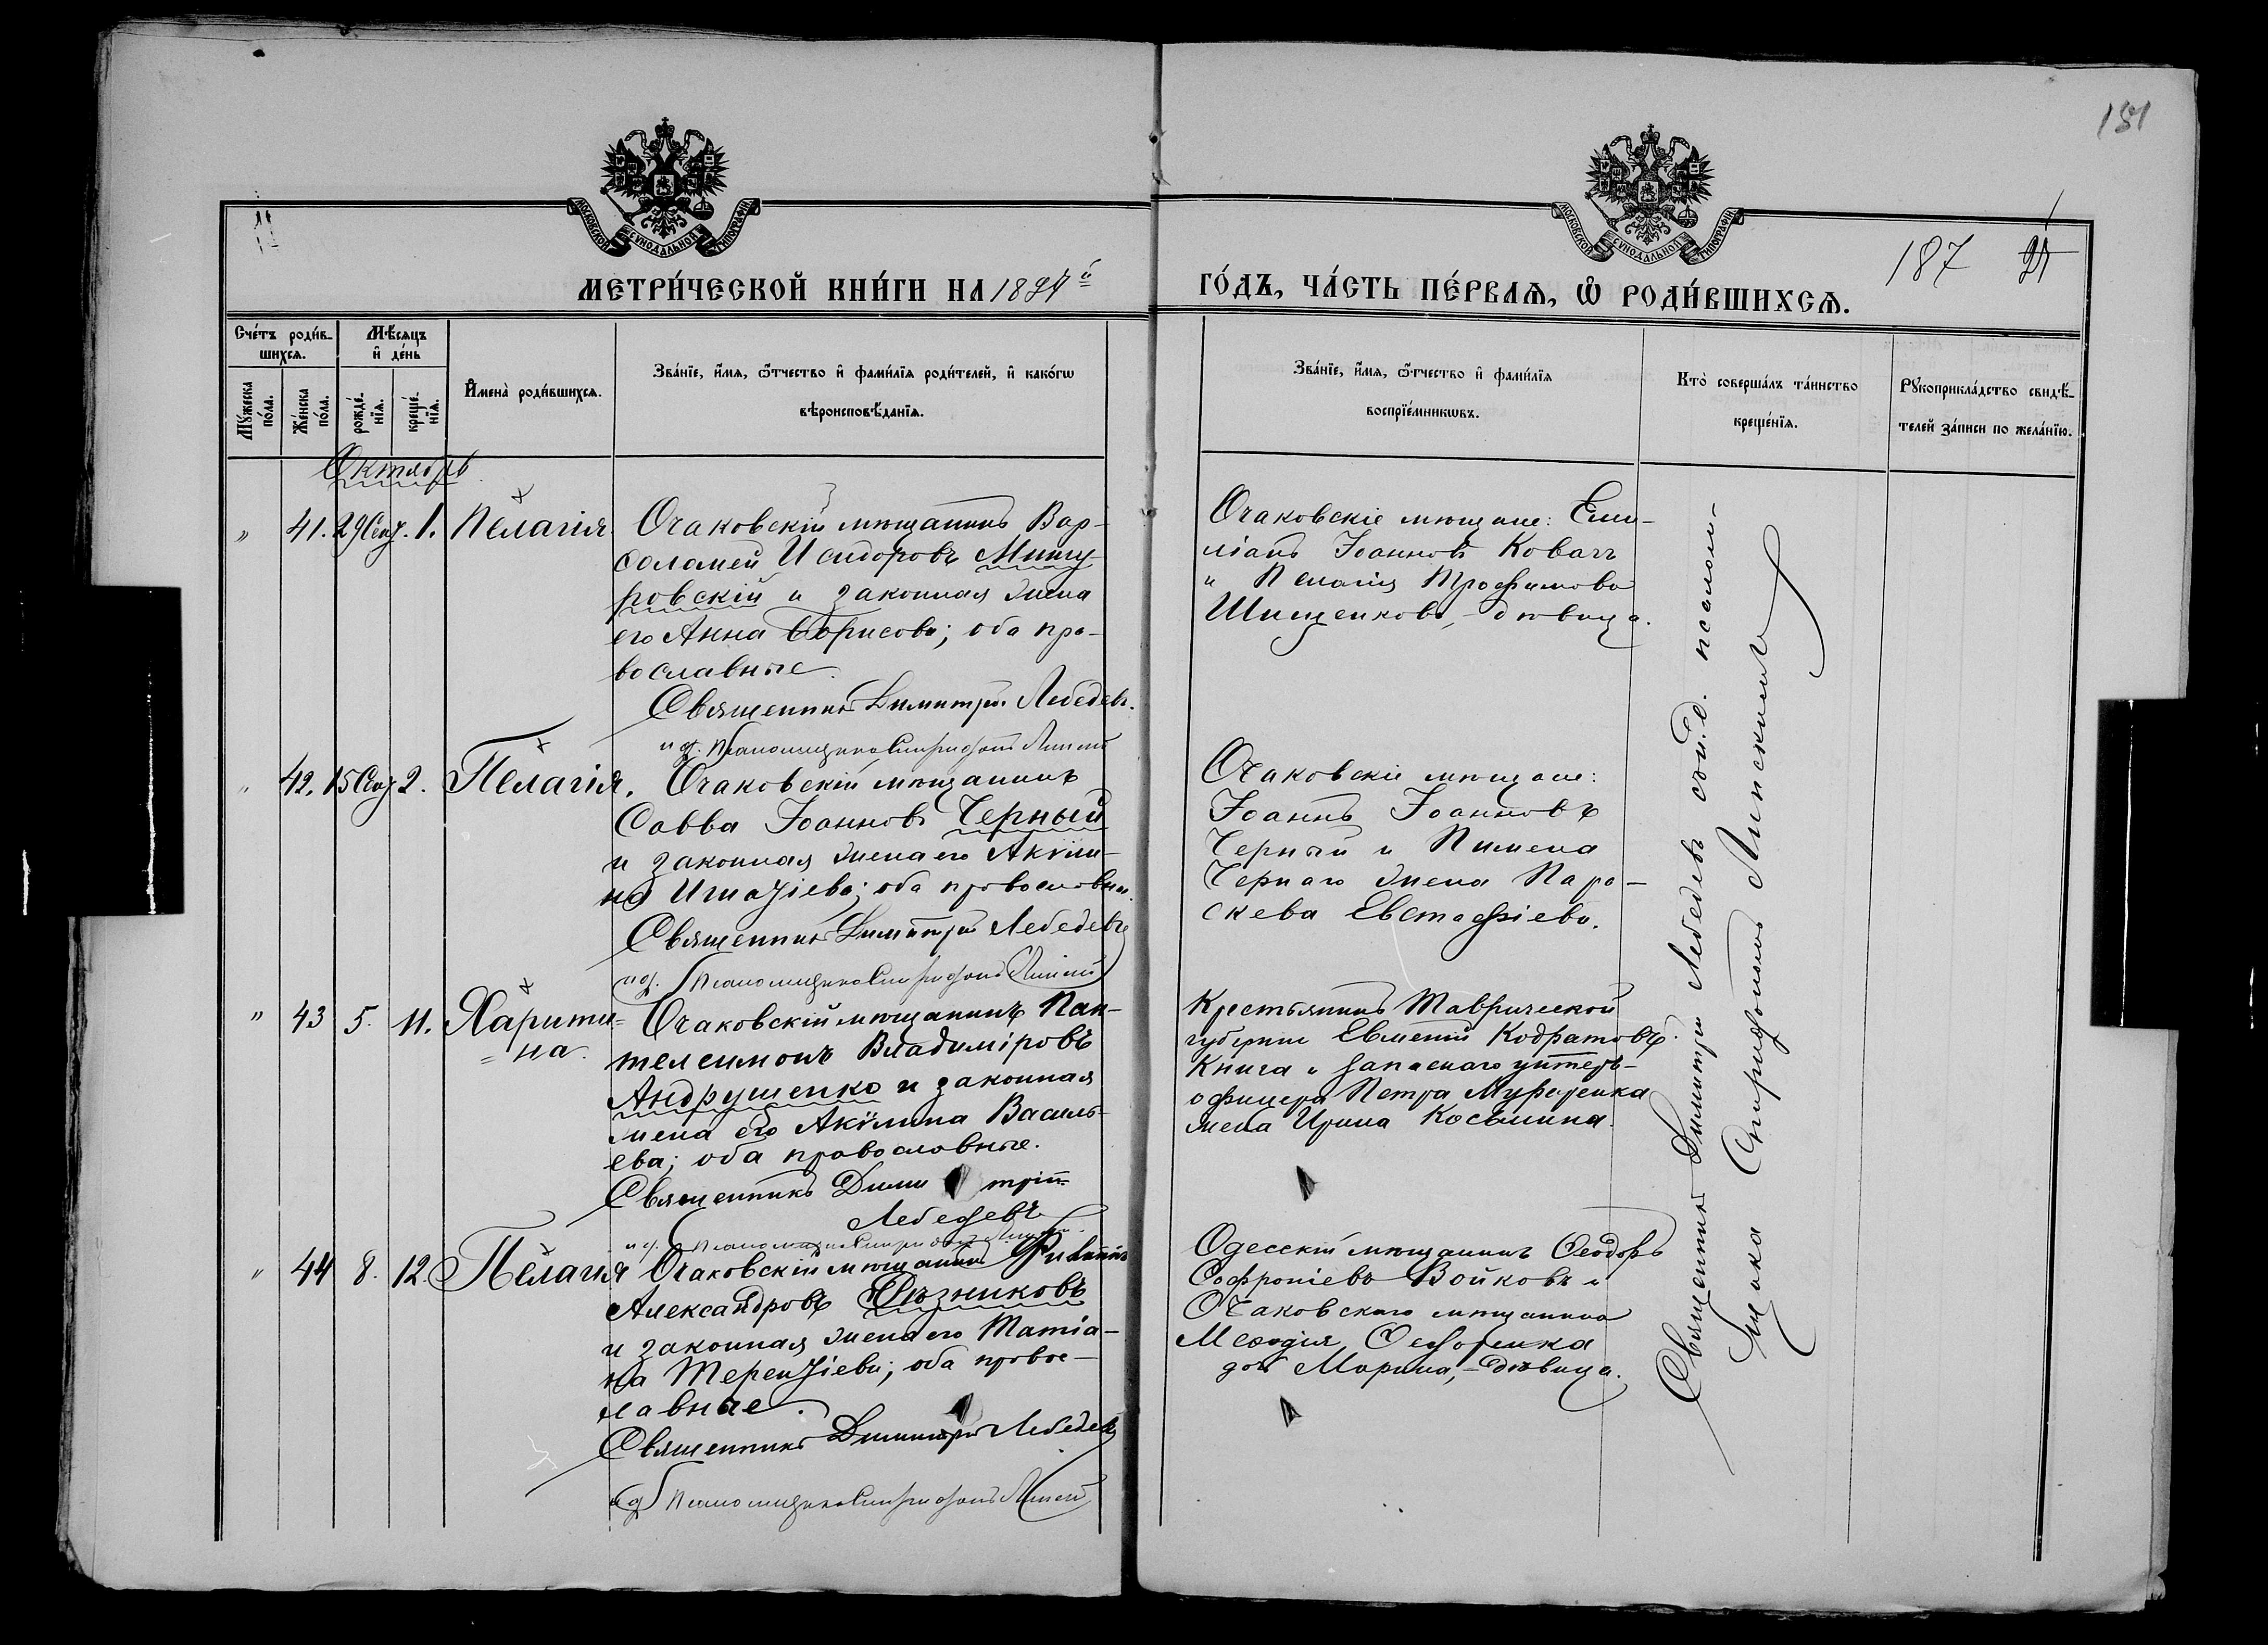 151
МОСКОВСКОЙ СѴНОДАЛЬНОЙ ТИПОГРАФІИ
МОСКОВСКОЙ СѴНОДАЛЬНОЙ ТИПОГРАФІИ
187
МЕТРИ́ЧЕСКОЙ КНИ́ГИ НА 1894й
ГО́ДЪ, ЧА́СТЬ ПЕ́РВАѦ, Ѡ РОДИ́ВШИХСѦ.
Сче́тъ роди́вшихсѧ.
Мѣ́сѧцъ и҆ де́нь
Мꙋ́жеска по́ла.
Же́нска по́ла.
рожде́нїѧ.
креще́нїѧ.
И҆мена̀ роди́вшихсѧ.
Зва́нїе, и҆́мѧ, ѻ҆́тчество и҆ фами́лїѧ роди́телей, и҆ како́гѡ
вѣроисповѣ́данїѧ.
Зва́нїе, и҆́мѧ, ѻ҆́тчество и҆ фами́лїѧ
воспрїе́мникѡвъ.
Кто̀ соверша́лъ та́инство
креще́нїѧ.
Рꙋкоприкла́дство свидѣ́-
телей за́писи по жела́нїю.
Октябрь
" 41. 29 Сент. 1. Пелагія.
Очаковскій мѣщанинъ Вар-
ѳоломей Исидоровъ
ровскій и законная жена
его Анна Борисова; оба пра-
вославные.
Священникъ Димитрій Лебедевъ.
и д. Псаломщика Спиридонъ
Очаковскіе мѣщане: Еми-
ліанъ Іоанновъ Ковачъ
и Пелагія Трофимова
Шищенкова, - дѣвица.
" 42. 15 Сент 2. Пелагія.
Очаковскій мѣщанинъ
Савва Іоанновъ Черный
и законная жена его Акили-
на Игнатіева; оба православны.
Священникъ Димитрій Лебедевъ
и д. Псаломщика Спиридонъ
Очаковскіе мѣщане:
Іоаннъ Іоанновъ
Черный и Пимена
Чернаго жена Пара-
скева Евстафіева.
" 43 5. 11. Харити-
на.
Очаковскій мѣщанинъ Пан-
телеимонъ Владиміровъ
Андрушенко и законная
жена его Акилина Василь-
ева; оба православные.
Священникъ Дими трій
Лебедевъ
и д. Псаломщика Спиридонъ
Крестьянинъ Таврической
губерніи Евменій Кодратовъ
Книга и запаснаго унтеръ-
офицера Петра
жена Ирина Косьмина.
" 44 8. 12. Пелагія
Очаковскій мѣщанинъ Филиппъ
Александровъ Рѣзниковъ
и законная жена его Татіа-
на Терентіева; оба правос-
лавные.
Священникъ Димитрій Лебедевъ
и д Псаломщика Спиридонъ
Одесскій мѣщанинъ Ѳеодоръ
Софроніевъ Войковъ и
Очаковскаго мѣщанина
Меѳодія Ѳедоренка
доч Марина, - дѣвица.
Священникъ Димитрій Лебедевъ съ и. д. псалом-
щика Спиридономъ Липскимъ